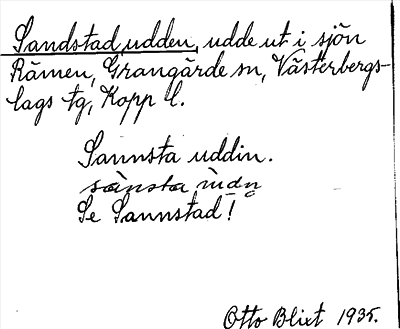 Sandstad udden, udde ut i sjön
Rämen, Grangärde sn, Västerbergs-
lags tg, Kopp l.
Sannsta uddin.
Se Sannstad!
Otto Blixt 1935.